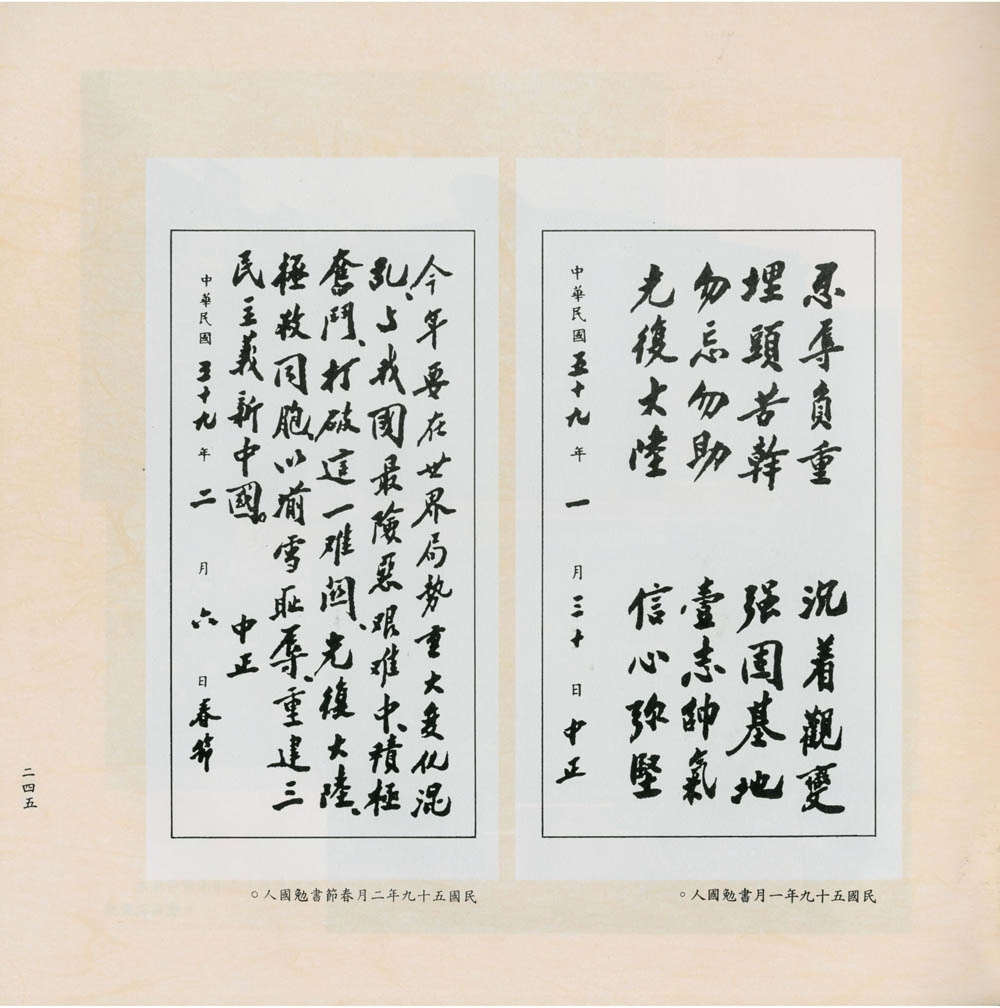 忍辱負重　沉着觀變
埋頭苦幹　强固基地
勿忘勿助　壹志帥氣
光復大陸　信心弥堅
中華民國五十九年一月三十日中正
民國五十九年一月書勉國人。
今年要在世界局勢重大变化混
乱、与我國最險惡艰难中、積極
奮鬥、打破這一难関、光復大陸、
拯救同胞、以湔雪耻辱、重建三
民主義新中國。中正
中華民國五十九年二月六日春節
民國五十九年二月春節書勉國人。
二四五